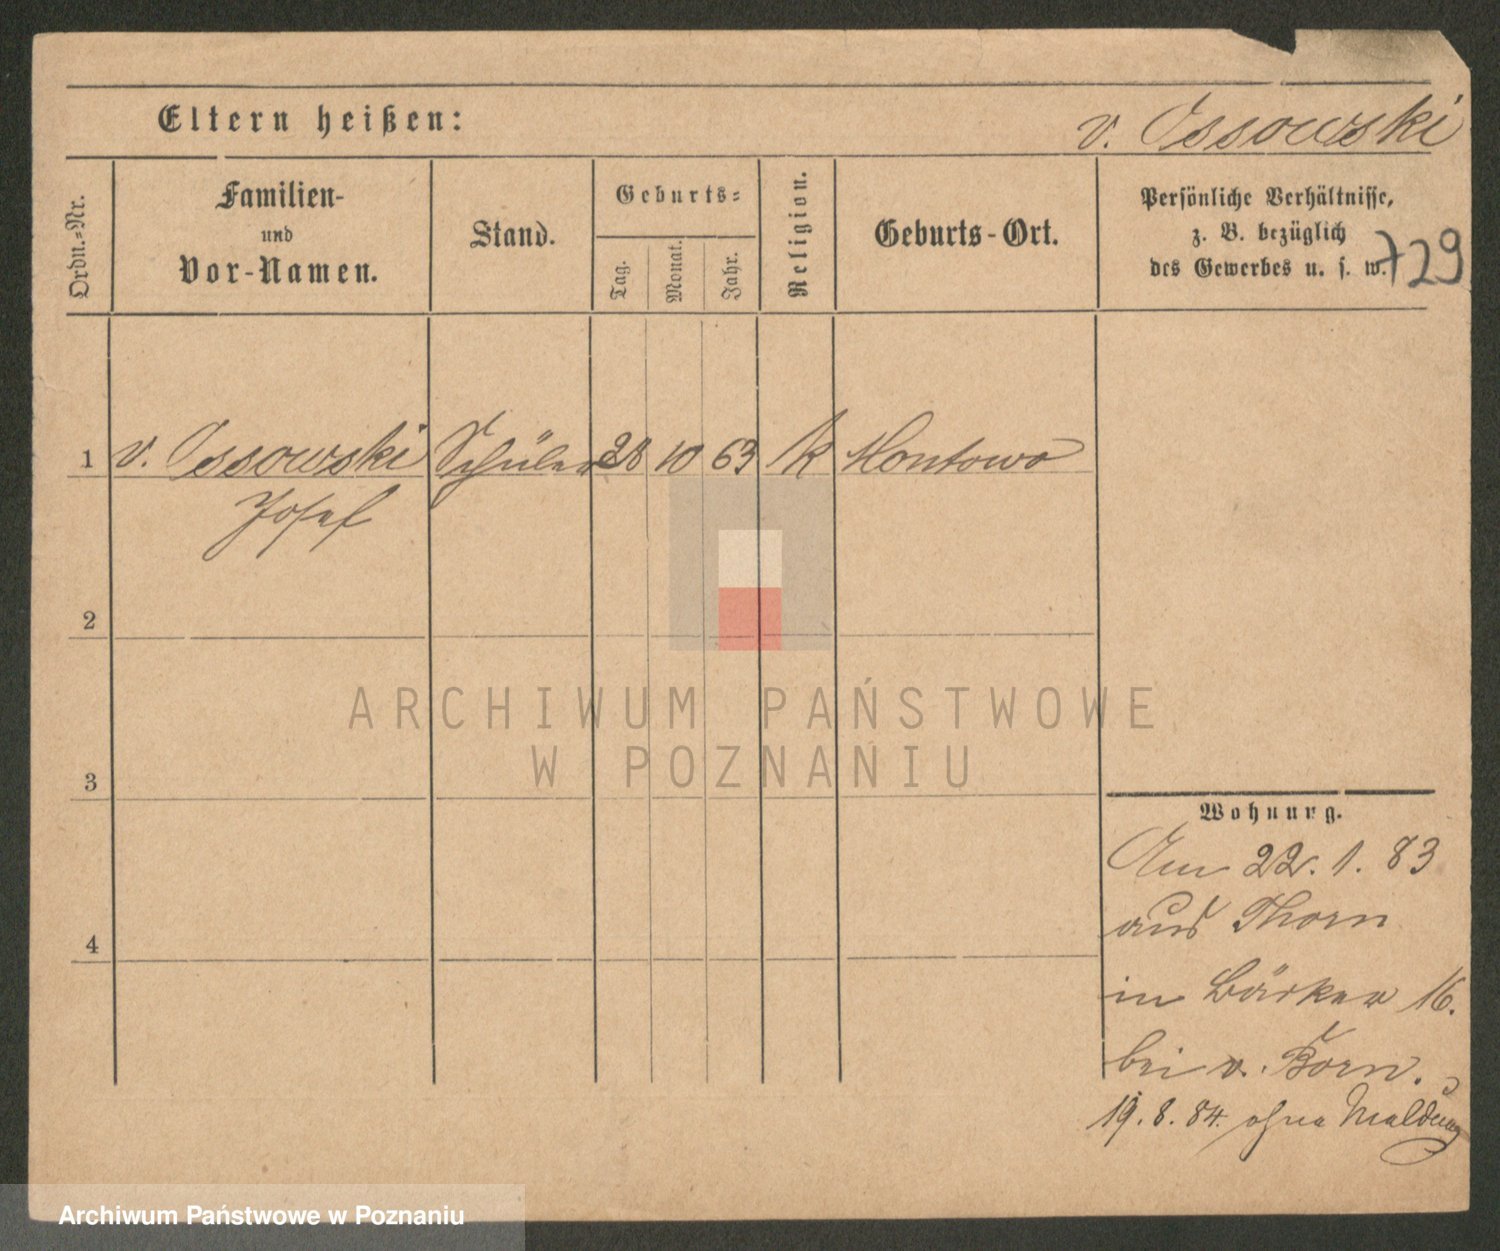 Eltern heißen:
v. Ossowski
Ordn.-Nr.
Familien-
und
Vor-Namen.
Stand.
Geburts-
Tag.
Monat.
Jahr.
Religion.
Geburts-Ort.
Persönliche Verhältnisse,
z. B. bezüglich
des Gewerbes u. s. w.
729
1 v. Ossowski Schüler 28 10 63 k Montowo
Josef
2
3
4
Wohnung.
Am 22. 1. 83
aus Thorn
in Bäcker 16.
bei v. Born.
19. 8. 84. ohne Meldung
ARCHIWUM PAŃSTWOWE
W POZNANIU
Archiwum Państwowe w Poznaniu